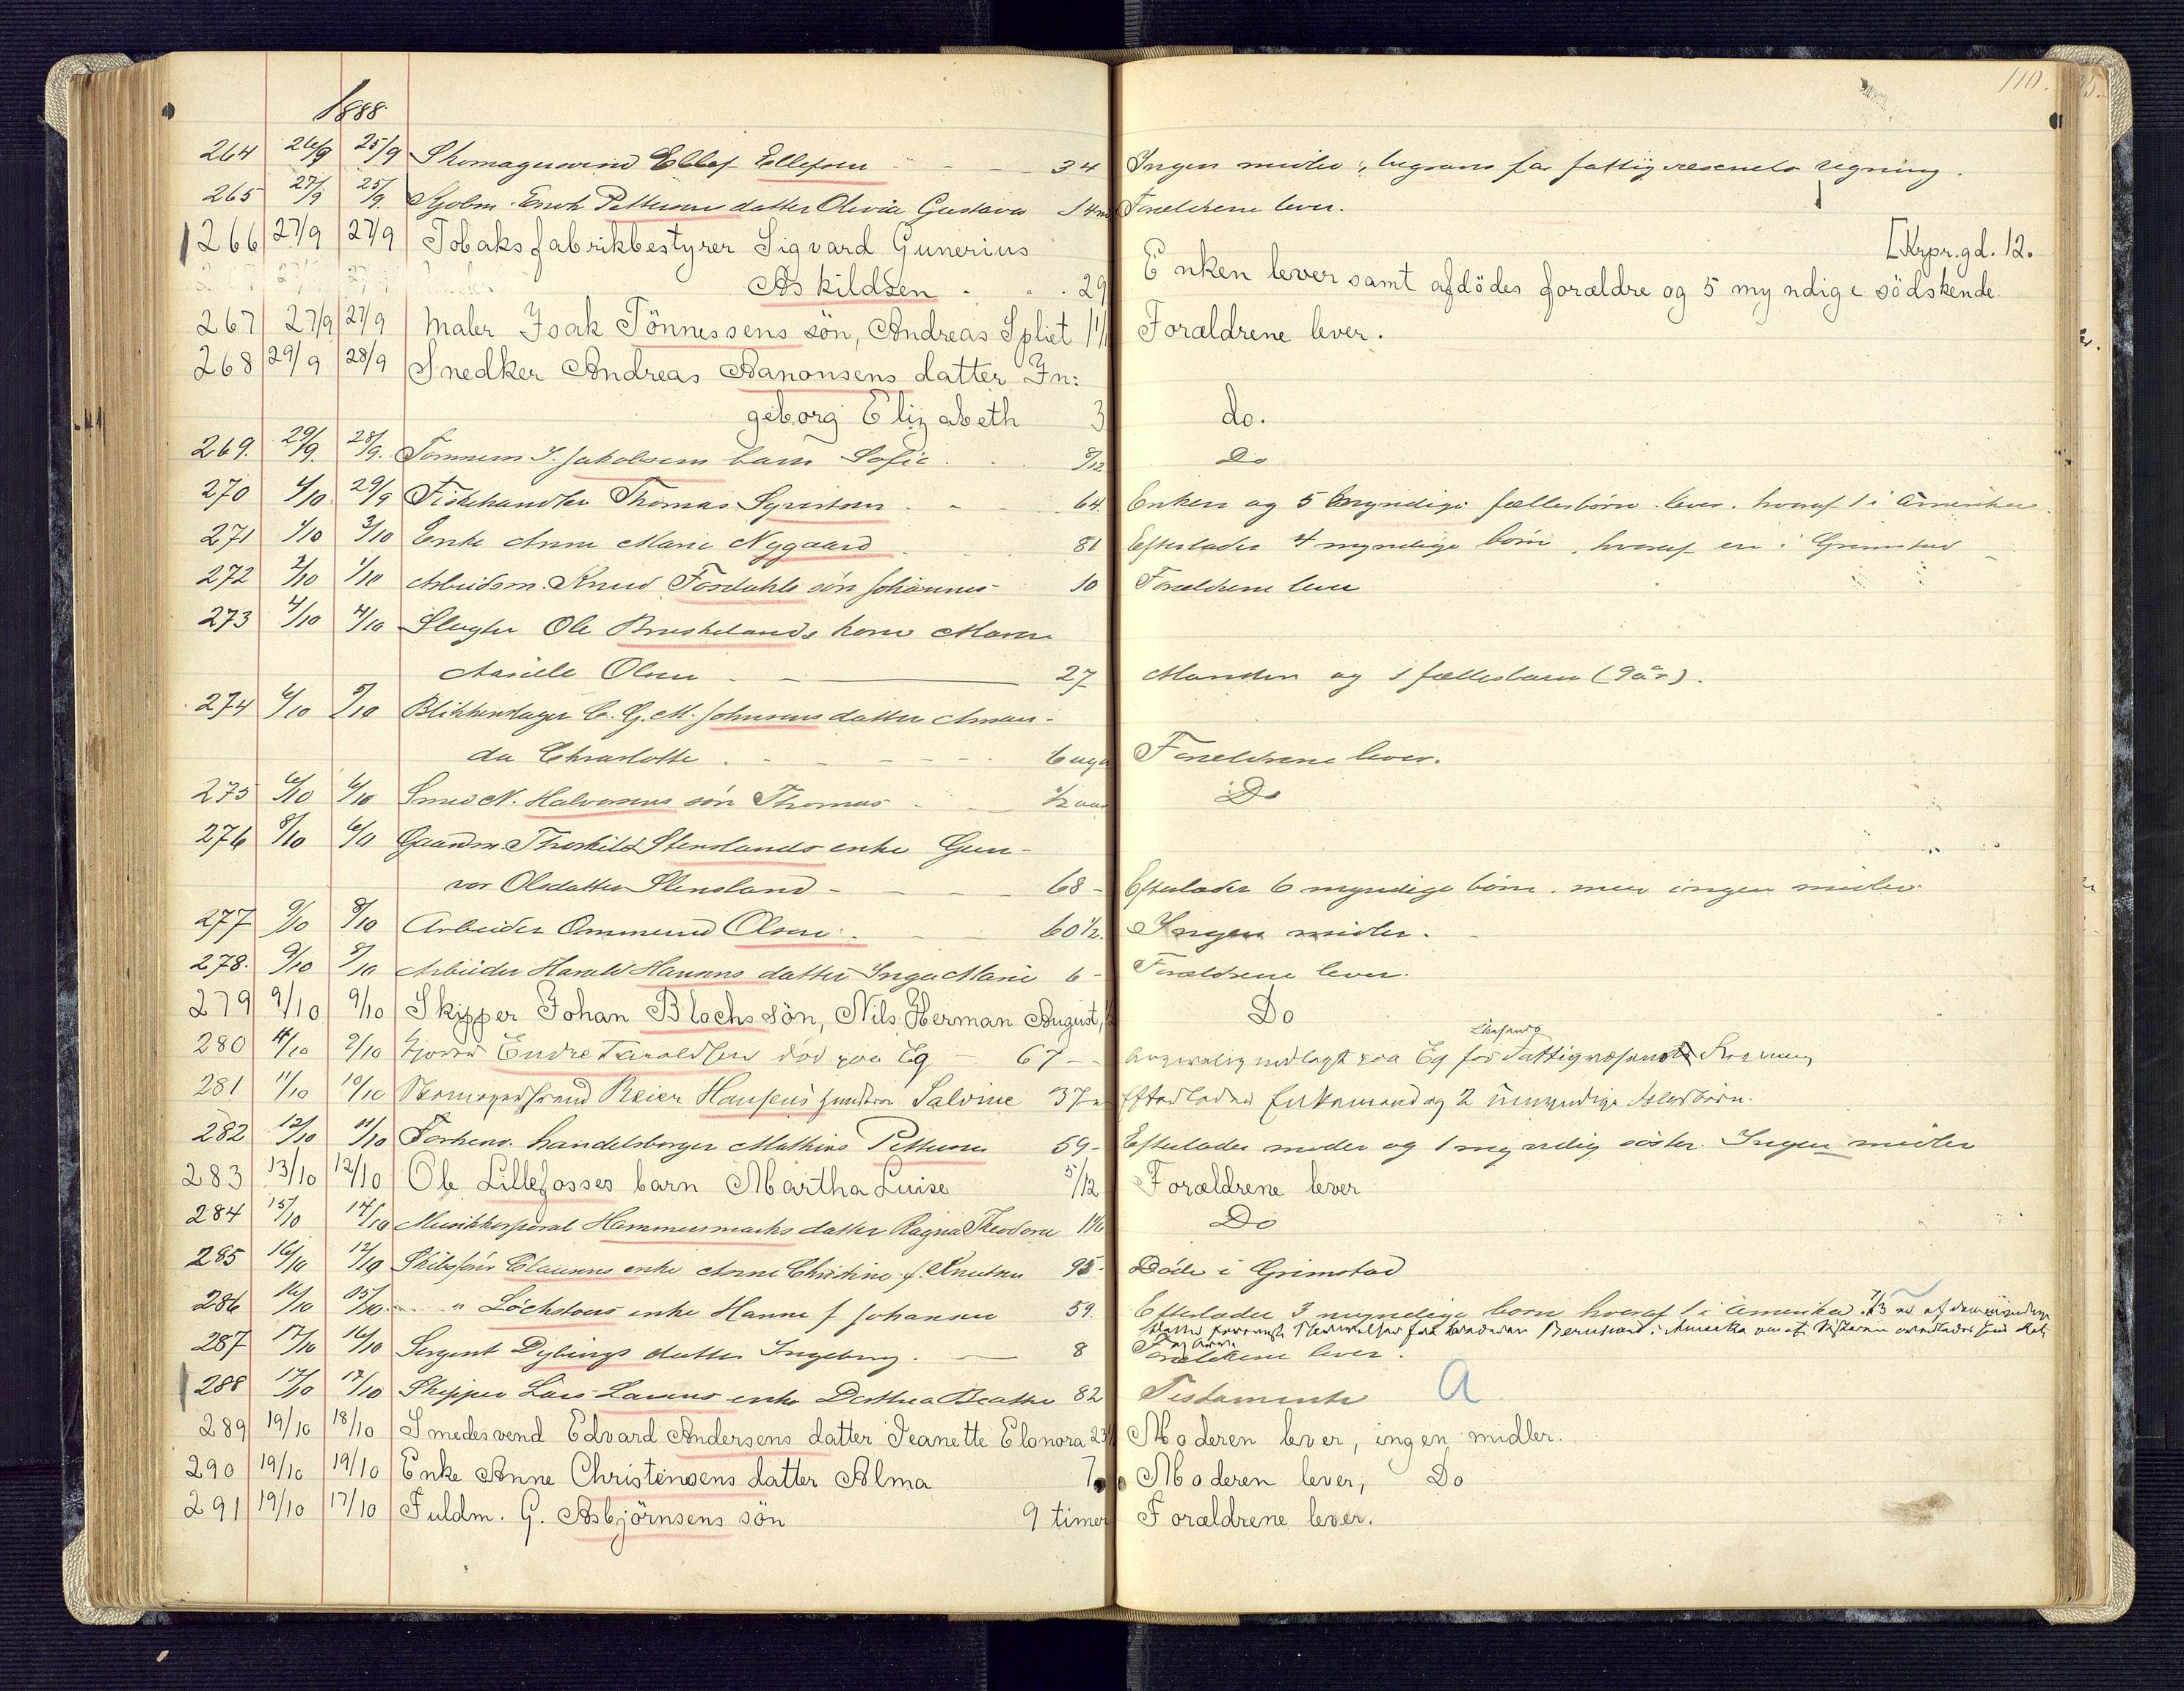 110.
1888
264 26/9 25/9 Skomagersvend Ellef Ellefsen 34 Ingen midler, begraves for fattigvæsenets regning.
265 27/9 25/9 Sjøbm. Enok Pettersens datter Olivia Gustava 14 Forældrene lever.
266 27/9 27/9 Tobaksfabrikbestyrer Sigvard Gunerius [Krpr.gd. 12.
Askildsen 29 Enken lever samt afdödes forældre og 5 myndige södskende.
267 27/9 27/9 Maler Isak Tönnessens sön, Andreas Spliet Forældrene lever.
268 29/9 28/9 Snedker Andreas Aanonsens datter In:
geborg Elizabeth 3 do.
269. 29/9. 28/9. Tømmerm J. Jakobsens barn Sofie 8/12 Do
270 1/10 29/9 Fiskehandler Thomas Syvertsen 64 Enken og 5 myndige fællesbörn lever, hvoraf 1 i Amerika
271 1/10 3/10 Enke Anne Marie Nygaard 81 Efterlader 4 myndige börn, hvoraf en i Grimstad
272 2/10 1/10 Arbeidsm. Knud Fosdahls sön Johannes 10 Forældrene lever
273 4/10 4/10 Slagter Ole Bruskelands kone Maren
Aasille Olsen 27 Manden og 1 fællesbarn (9 år).
274 6/10 5/10 Blikkenslager C. G. M. Johnsens datter Aman-
da Charlotte 6 uger Forældrene lever.
275 6/10 6/10 Smed N. Halvorsens sön Thomas 1/2 aar Do
276 8/10 6/10 Gaardm. Thorkild Stenslands enke Gun-
vor Olsdatter Stensland 68 Efterlader 6 myndige börn, men ingen midler
277 9/10 8/10 Arbeider Ommund Olsen 60 1/2. Ingen midler.
278. 9/10 8/10 Arbeider Harald Hansens datter Inga Marie 6 Forældrene lever.
279 9/10 9/10 Skipper Johan Blochs sön, Nils Herman August, Do
280 11/10 9/10 Endre Taraldsen død paa Eg 67 indlagt paa Eg for Fattigvæsenets Regning
281 11/10 10/10 Skomagersvend Reier Hansens hustru Salvine 37 Efterlader Enkemand og 2 umyndige fælesbörn.
282 12/10 11/10 Forhenv. handelsborger Mathias Pettersen 59 Efterlader moder og 1 myndig söster. Ingen midler
283 13/10 12/10 Ole Lillefosses barn Martha Luise 5/12 Forældrene lever
284 15/10 14/10 Musikkorporal Hammersmarks datter Ragna Theodora Do
285 16/10 12/10 Skibsför Clausens enke Anne Christine f. Knutsen 95 Döde i Grimstad
286 16/10 15/10 " Löchstöers enke Hanne f Johansen 59. Efterlader 3 myndige born hvoraf 1 i Amerika. 7/3
287 17/10 16/10 Sergent Dybings datter Ingeborg 8 Forældrene lever.
288 17/10 17/10 Skipper Lars Larsens enke Dorthea Beathe 82 Testamente A
289 19/10 18/10 Smedesvend Edvard Andersens datter Jeanette Elonora 23 Moderen lever, ingen midler.
290 19/10 19/10 Enke Anne Christensens datter Alma 7 Moderen lever, Do
291 19/10 17/10 Fuldm. G. Asbjörnsens sön 9 timer Forældrene lever.